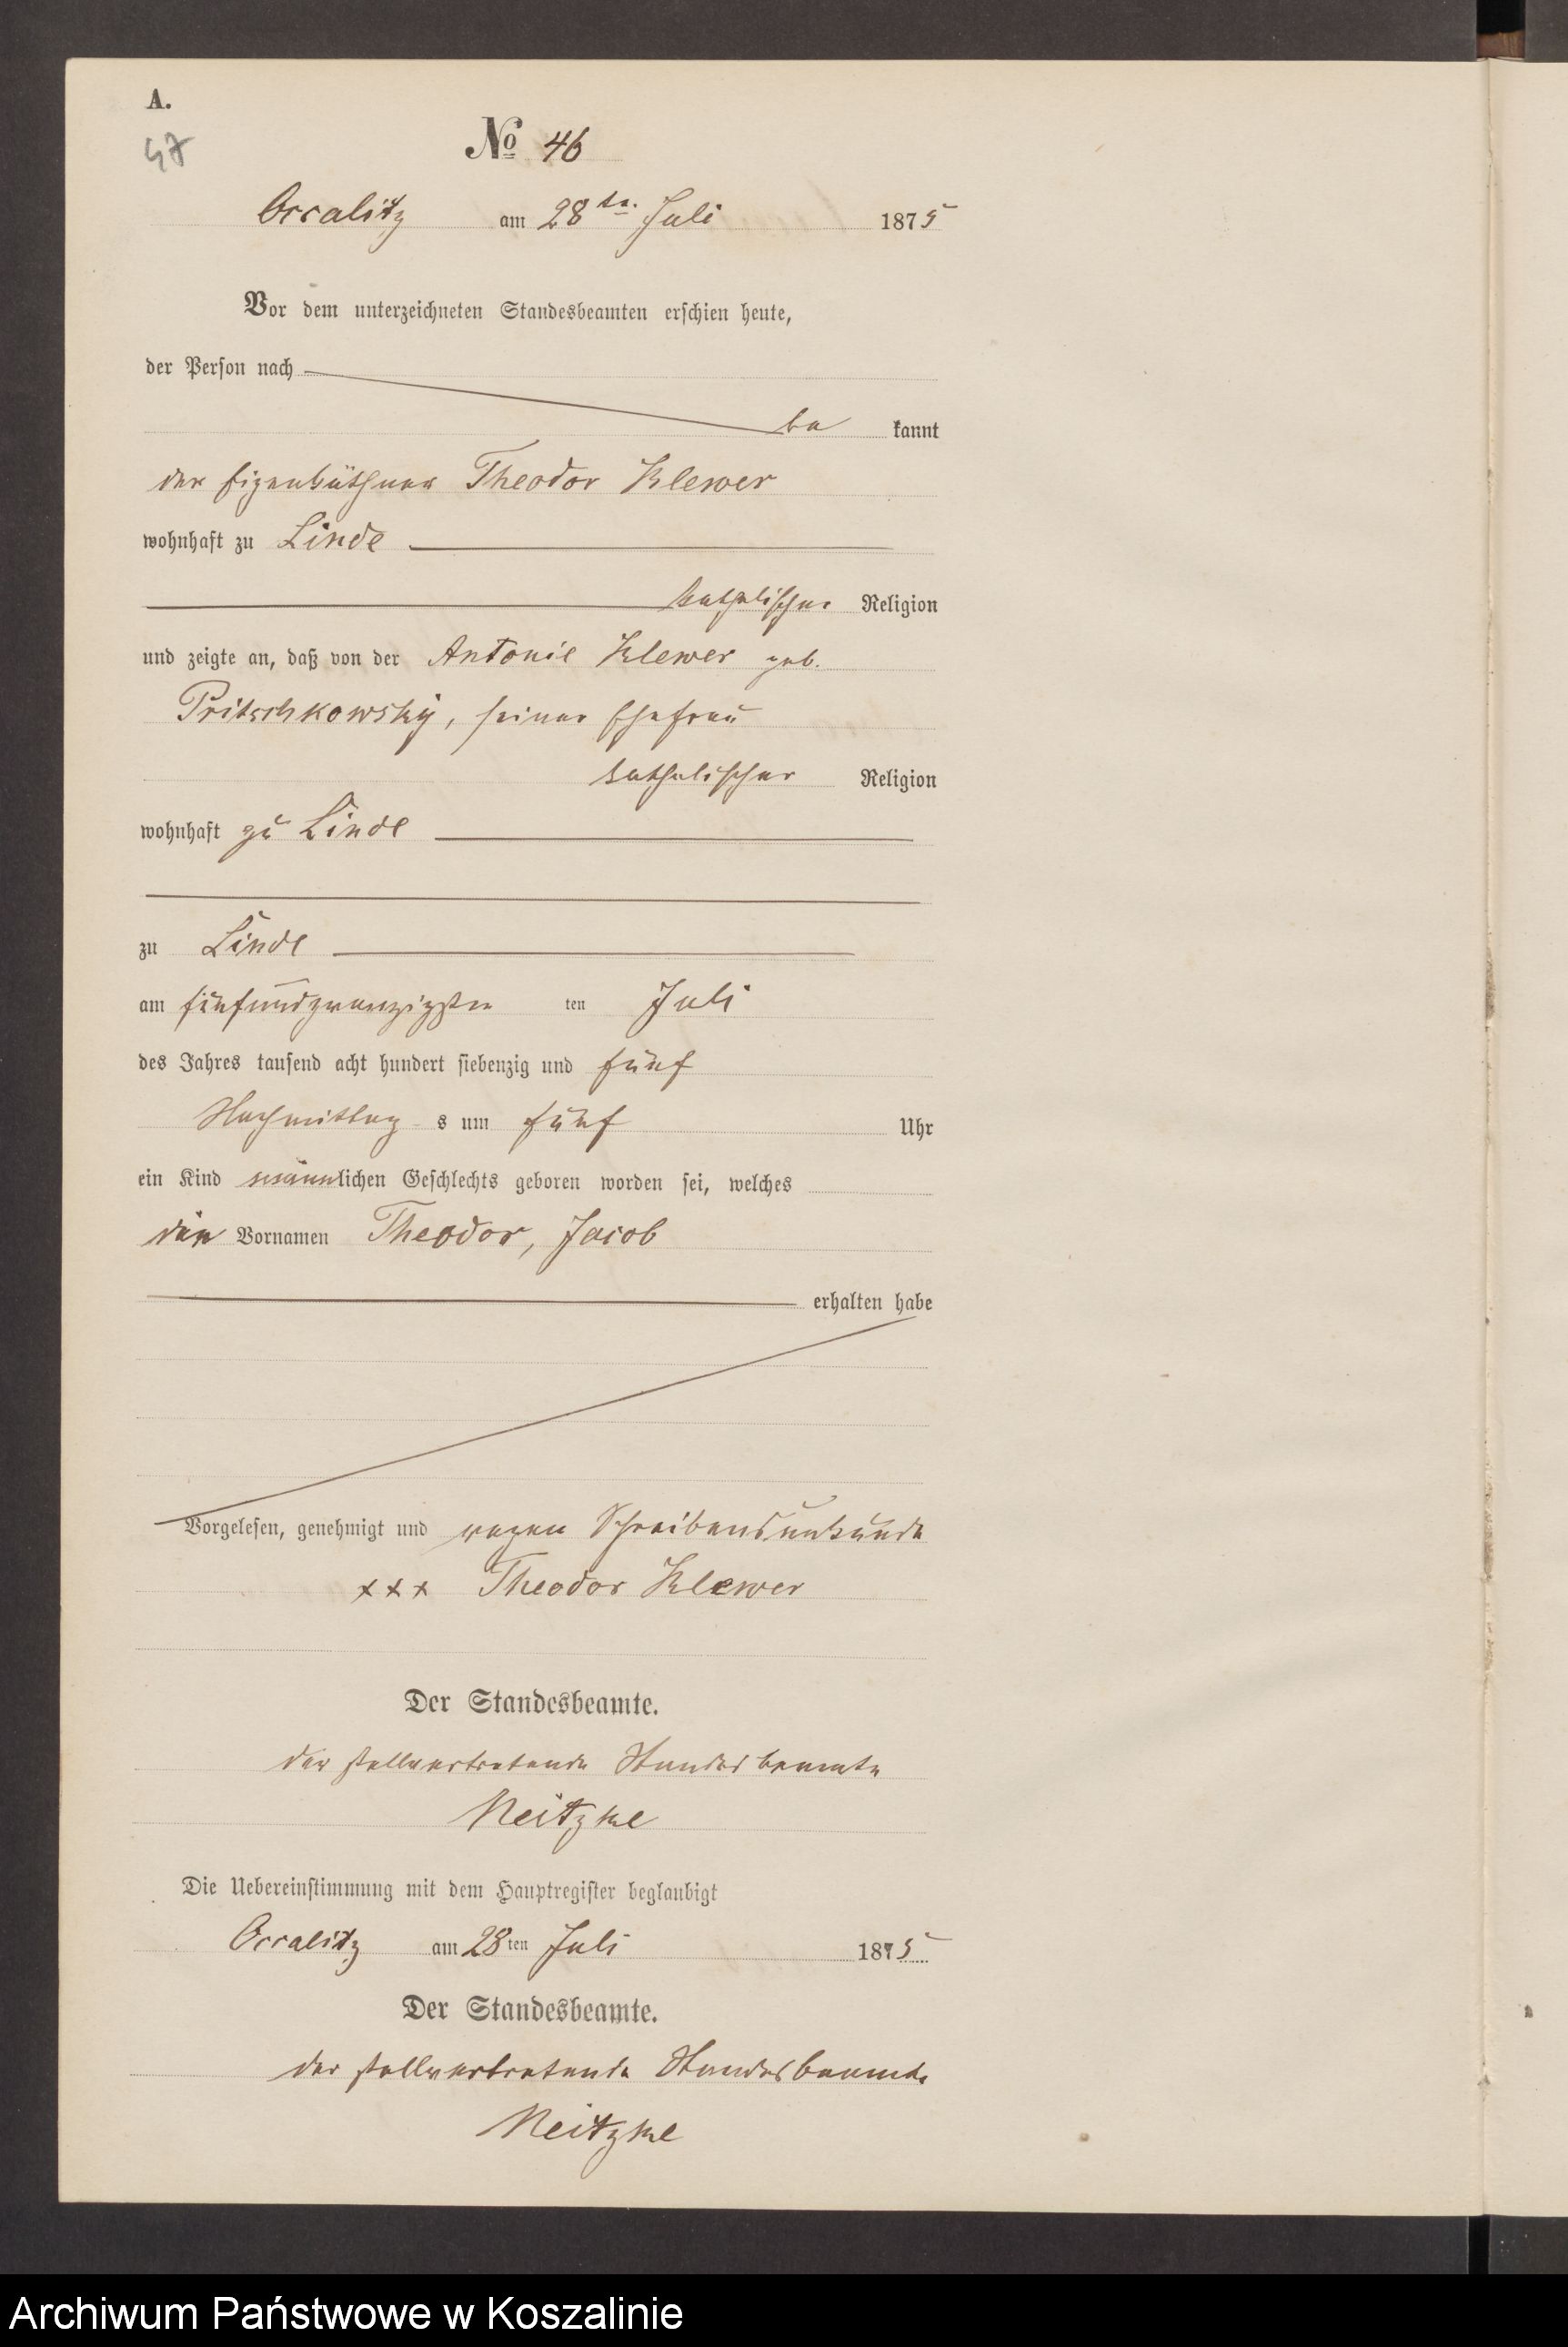 A.
47
No 46
Occalitz am 28ten Juli 1875
Vor dem unterzeichneten Standesbeamten erschien heute,
der Person nach
be kannt
der Eigenkäthner Theodor Klewer
wohnhaft zu Linde
katholischer Religion
und zeigte an, daß von der Antonie Klewer geb.
Pritschkowsky, seiner Ehefrau
katholischer Religion
wohnhaft zu Linde
zu Linde
am fünfundzwanzigsten ten Juli
des Jahres tausend acht hundert siebenzig und fünf
Nachmittag s um fünf Uhr
ein Kind männlichen Geschlechts geboren worden sei, welches
die Vornamen Theodor, Jacob
erhalten habe
Vorgelesen, genehmigt und wegen Schreibensunkunde
xxx Theodor Klewer
Der Standesbeamte.
der stellvertretende Standesbeamte
Neitzke
Die Uebereinstimmung mit dem Hauptregister beglaubigt
Occalitz am 28ten Juli 1875
Der Standesbeamte.
der stellvertretende Standesbeamte
Neitzke
Archiwum Państwowe w Koszalinie